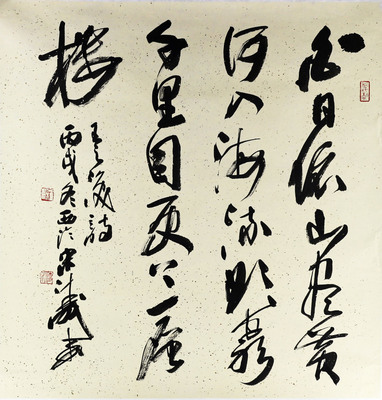 白日依山尽黄
河入海流欲穷
千里目更上一层
楼
王之涣诗
丙戌冬西泠